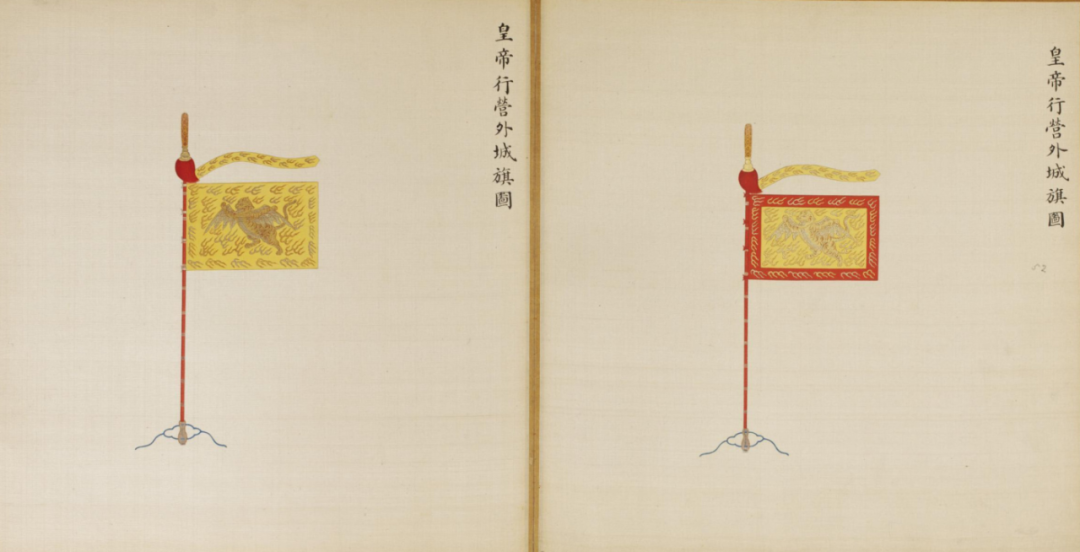 皇帝行營外城旗圖
皇帝行營外城旗圖
52